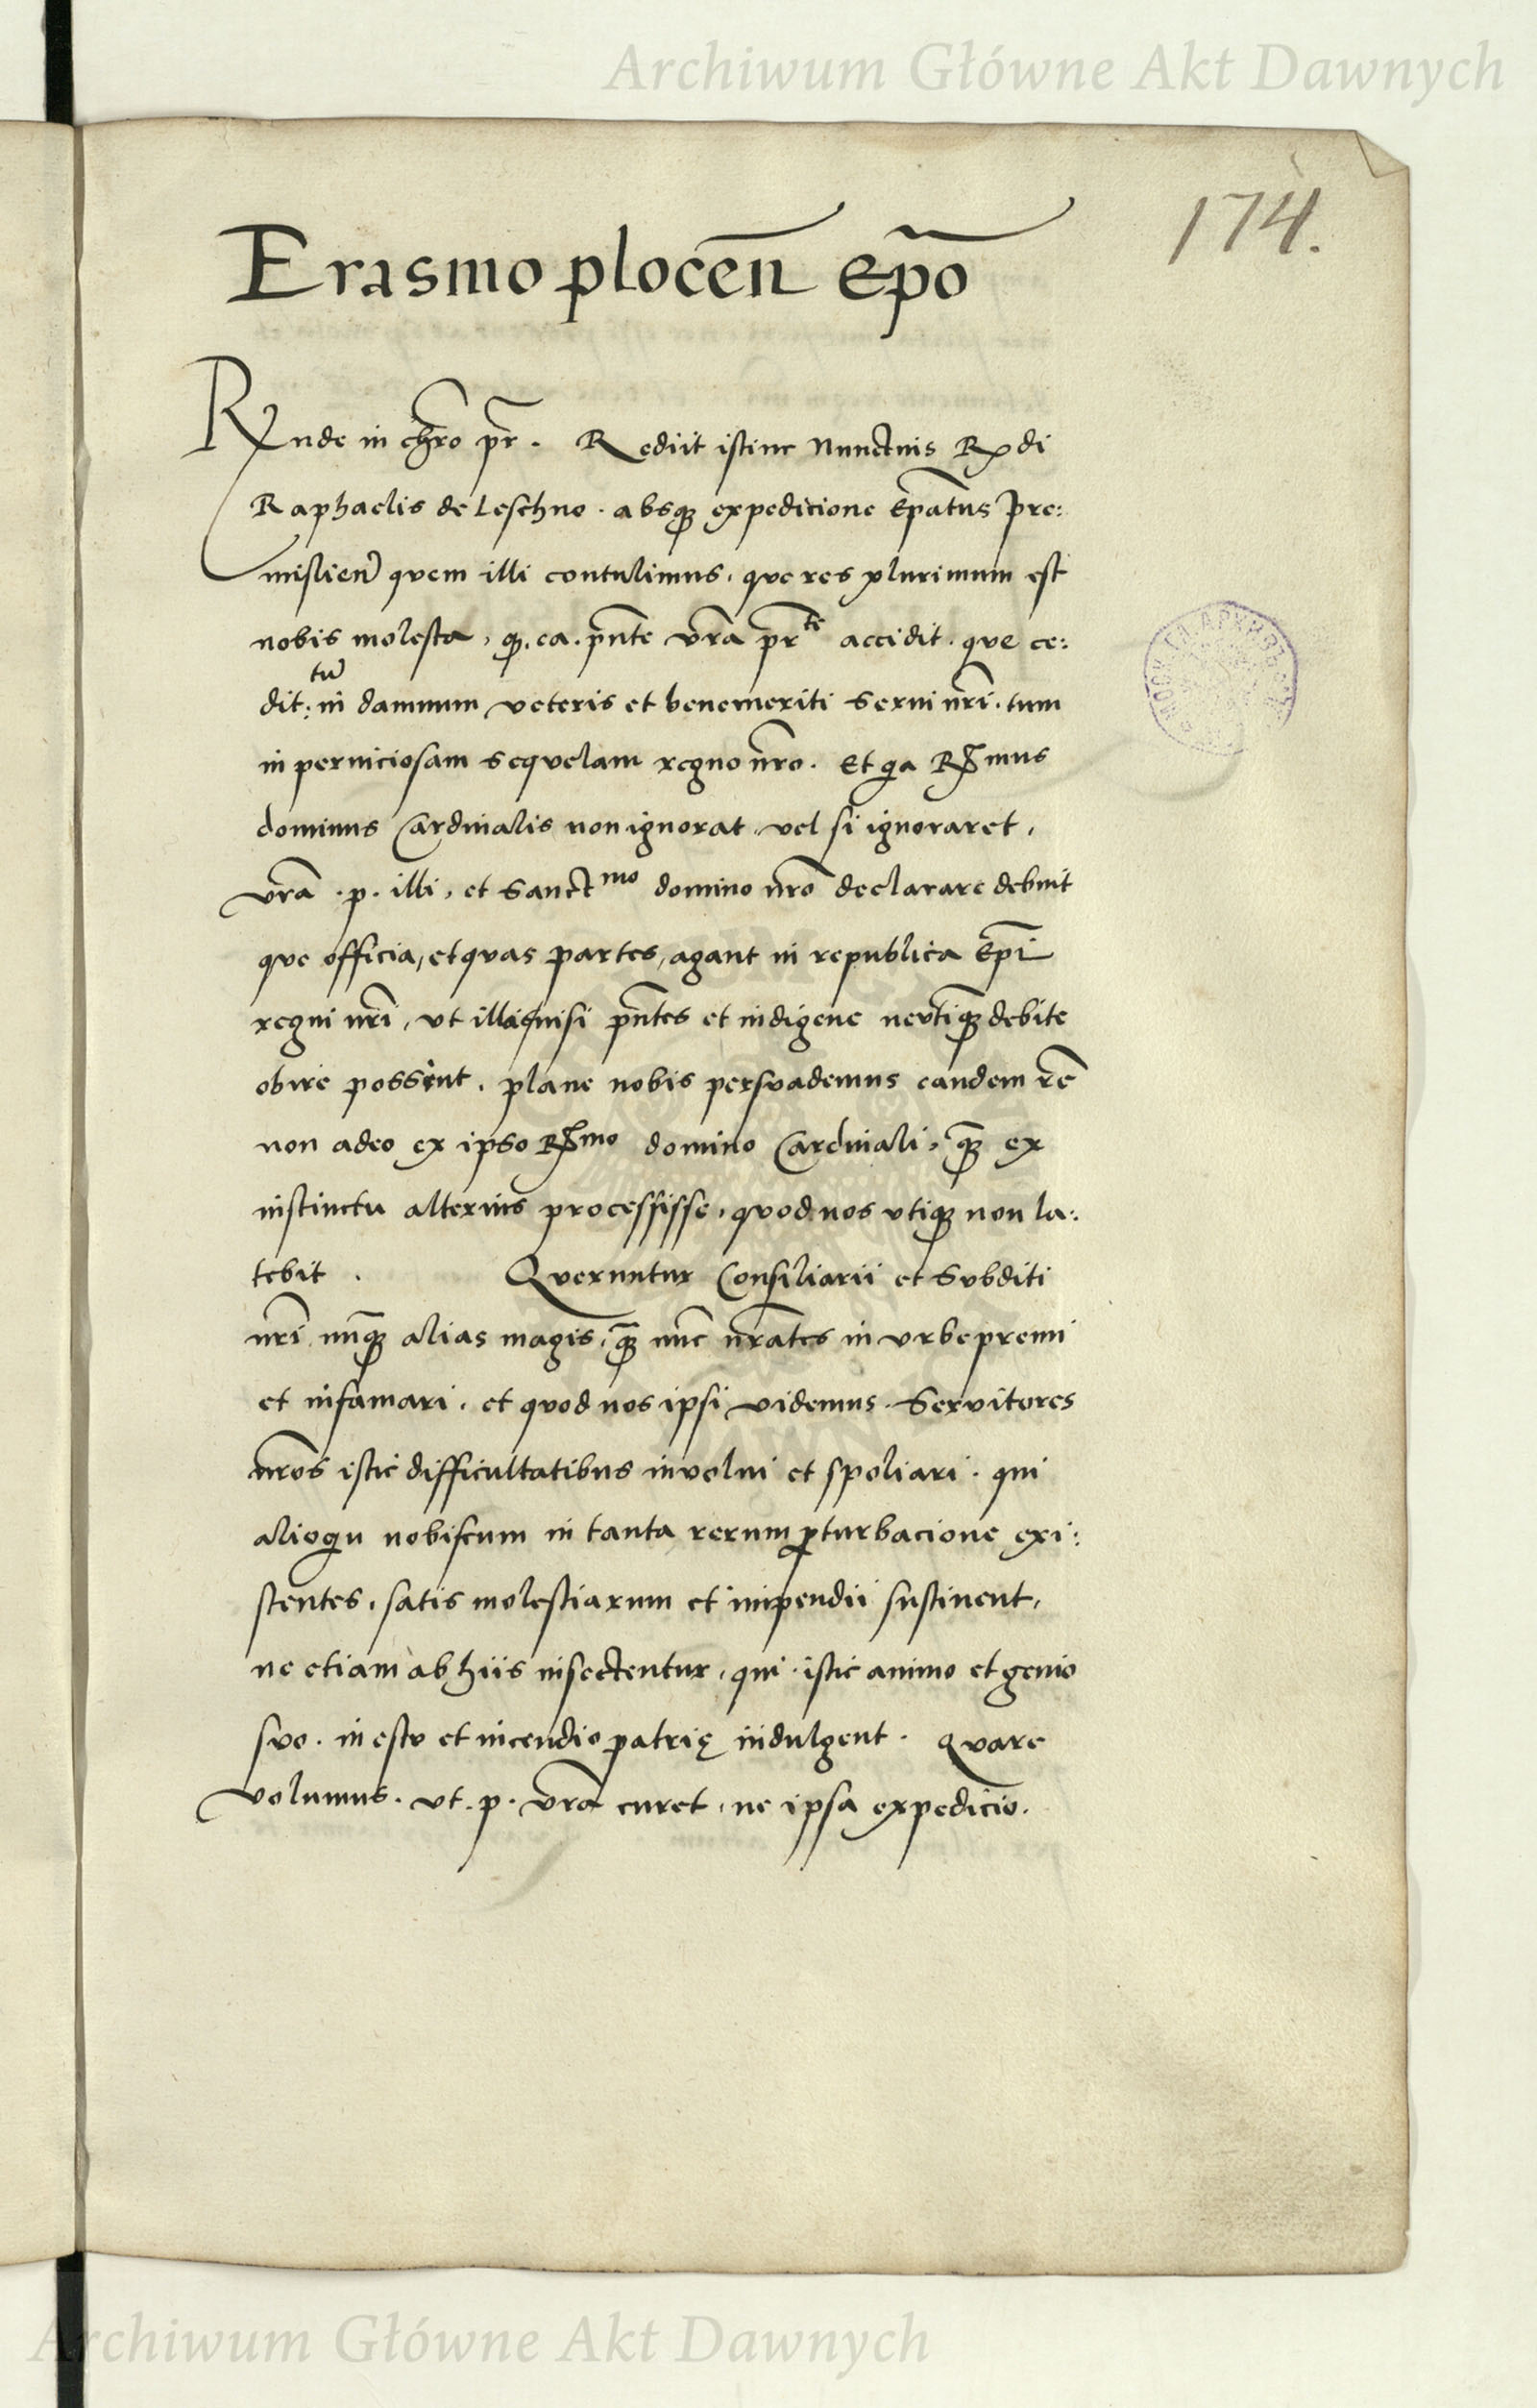 Archiwum Główne Akt Dawnych
174.
Erasmo plocen̄ Ep̄o
Rx̄nde in chr̄o pr̄. Rediit istinc Nunctius Rx̄di
Raphaelis de Leschno. absq₃ expedicione Ep̄atus Pre:
mislien̄ quem illi contulimus, que res plurimum est
nobis molesta, q₃. ea. pn̄te vr̄a pr̄te accidit. que ce:
dit: tū in damnum veteris et benemeriti servi nr̄i. tum
in perniciosam sequelam regno nr̄o. Et qa Rx̄mus
dominus Cardinalis non ignorat, vel si ignoraret,
vr̄a .p. illi, et Sanctmo domino nr̄o declarare debuit
que officia, et quas partes, agant in republica Ep̄i
regni nr̄i, ut illas nisi pn̄tes et indigene neutiq₃ debite
obire possint. plane nobis persuademus eandem rē
non adeo ex ipso Rx̄mo domino Cardinali, q̄₃ ex
instinctu alterius processisse, quod nos utiq₃ non la:
tebit . Queruntur Consiliarii et Subditi
nr̄i nūq₃ alias magis, q̄₃ nūc nr̄ates in urbe premi
et infamari, et quod nos ipsi videmus. Servitores
nr̄os istic difficultatibus involvi et spoliari. qui
alioqu nobiscum in tanta rerum p̱turbacione exi:
stentes, satis molestiarum et impendii sustinent,
ne etiam ab hiis insectentur, qui istic animo et genio
suo. in estu et incendio patrię indulgent. Quare
volumus. ut .p. vr̄a curet, ne ipsa expedicio.
Archiwum Główne Akt Dawnych